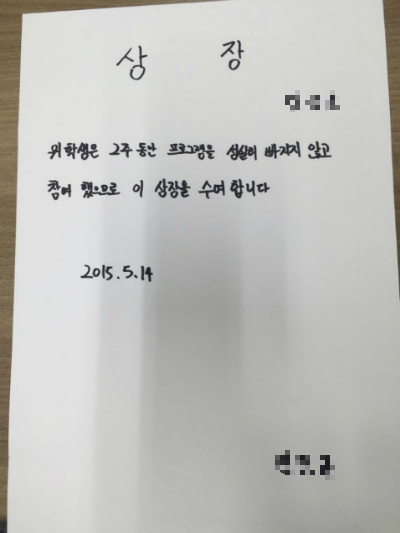 상 장
위 학생은 2주 동안 프로그램을 성실히 빠지지 않고
참여 했으므로 이 상장을 수여 합니다
2015.5.14